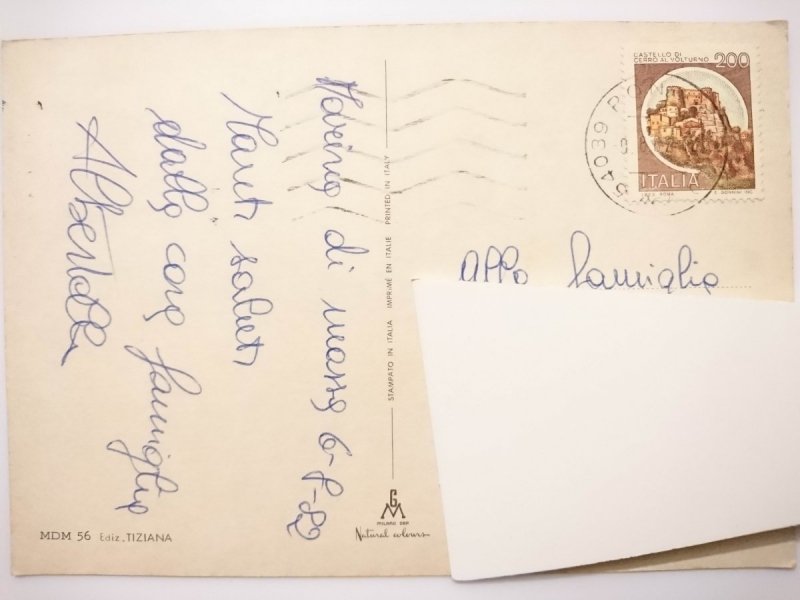 Marina di massa 6-8-82
Tanti saluti
dalla cara famiglia
CASTELLO DI
CERRO AL VOLTURNO
200
ITALIA
I.P.Z.S. ROMA
E. DONNINI INC.
54039
Alla famiglia
STAMPATO IN ITALIA IMPRIMÉ EN ITALIE PRINTED IN ITALY
GM
MILANO DEP.
Natural colours
MDM 56 Ediz. TIZIANA